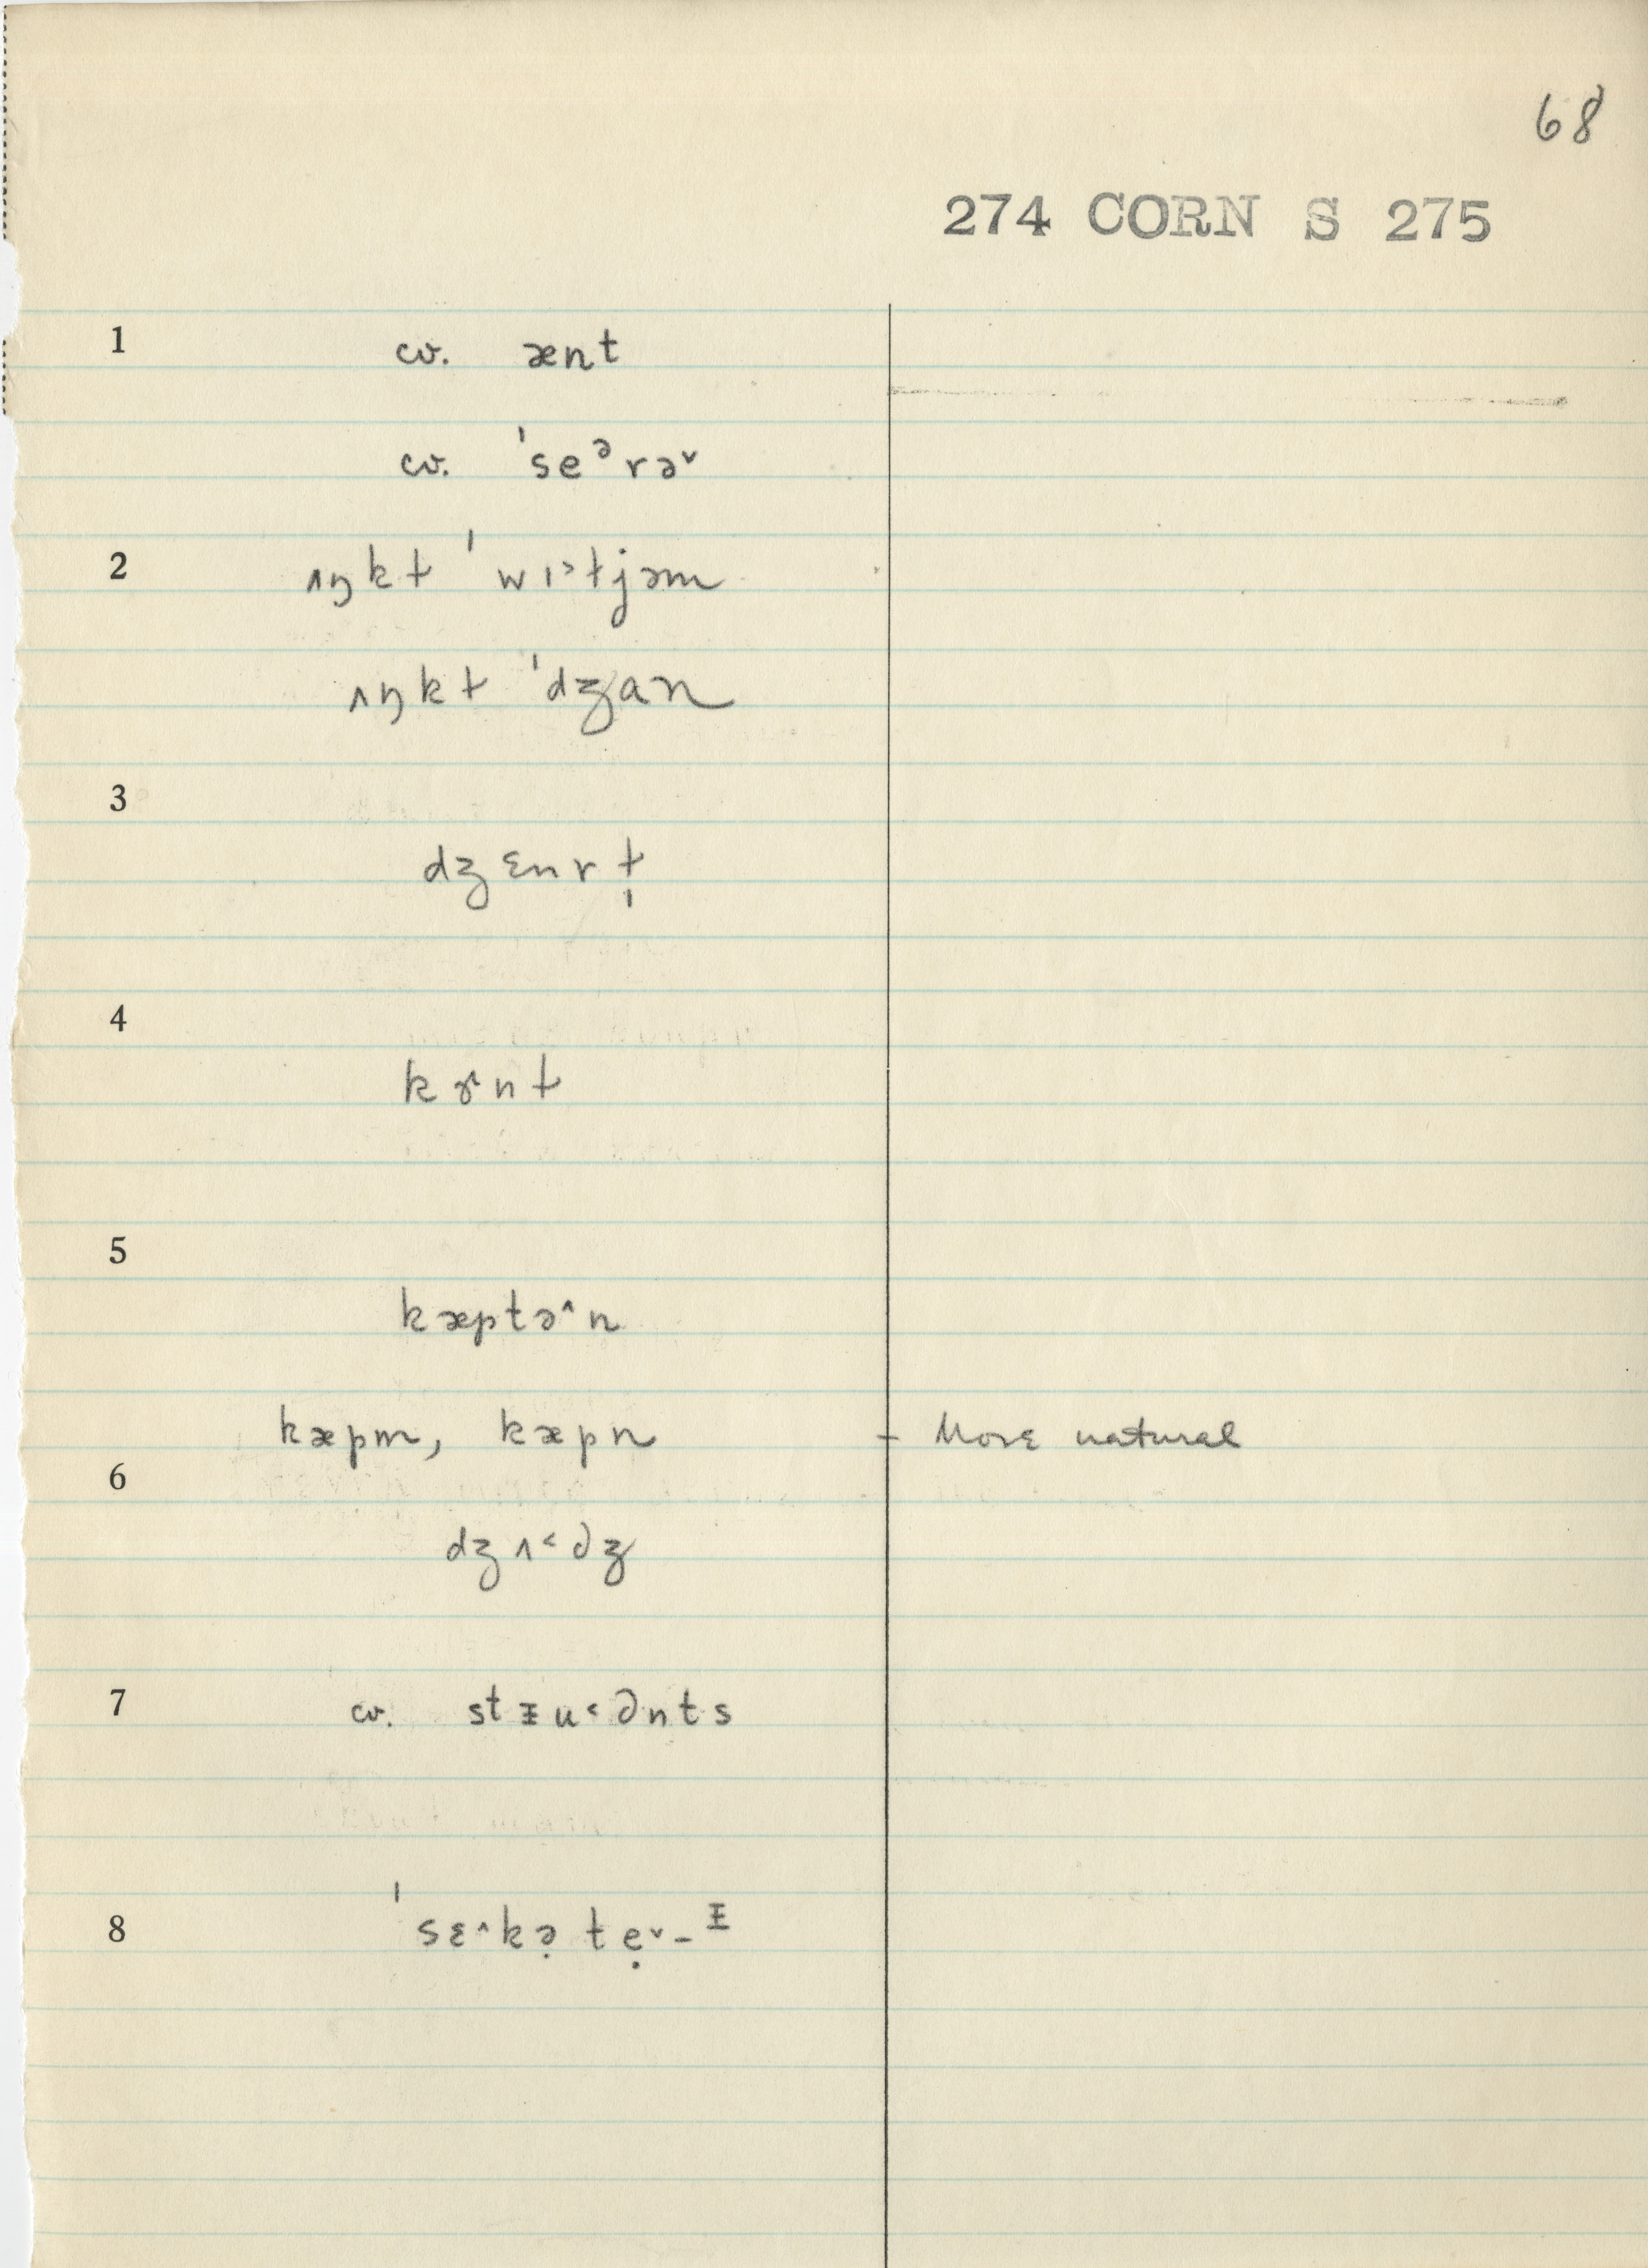 68
274 CORN S 275
1 cv. ænt
cv. ˈseᵊrə˅
2 ʌŋkɫ ˈwɪ˃ɫjəm
ʌŋkɫ ˈdʒan
3
dʒɛnrɫ̩
4
kɝnɫ
5
kæptə˄n
kæpm, kæpn - More natural
6
dʒʌ˂dʒ
7 cv. stᵻu˂dnts
8 ˈsɛ˄kə̣tẹ˅-ᵻ